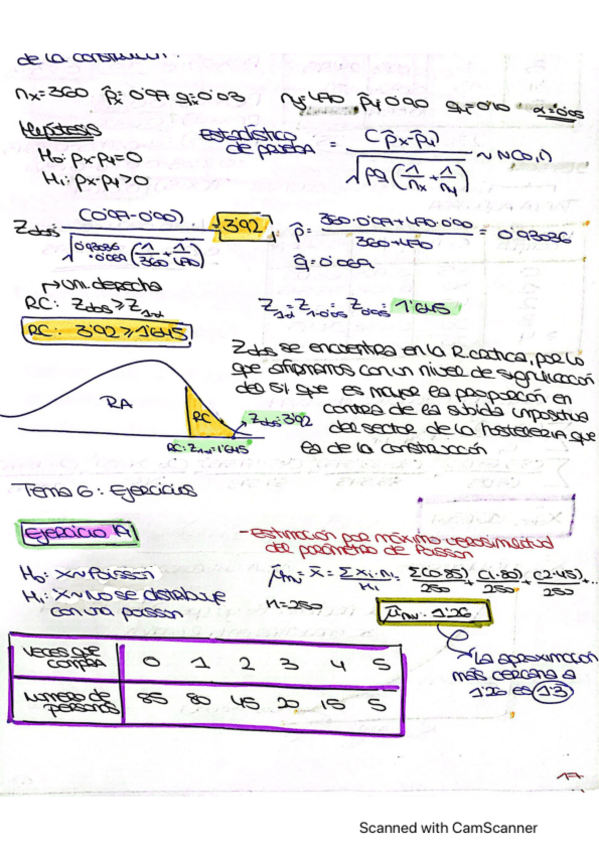 de la construcción.
nx=360 p̂x=0'97 qx=0'03 ny=470 p̂y=0'90 qy=0'10 α=0'05
Hipótesis
H0: px-py=0
H1: px-py>0
estadístico de prueba = (p̂x-p̂y) / √(pq(1/nx+1/ny)) ~ N(0,1)
Zobs= (0'97-0'90) / √(0'93036·0'069(1/360+1/470)) = 3'92
p̂= (360·0'97+470·0'90) / (360+470) = 0'93036
q̂=0'069
→uni.derecha
RC: Zobs ≥ Z1-α
Z1-α = Z1-0'05 = Z0'95 = 1'645
RC: 3'92 ≥ 1'645
Zobs se encuentra en la R.crítica, por lo
que afirmamos con un nivel de significación
del 5% que es mayor la proporción en
contra de la subida impositiva
del sector de la hostelería que
la de la construcción
RA
RC
Zobs=3'92
RC: Z1-α=1'645
Tema 6: Ejercicios
Ejercicio 19
-estimación por máximo verosimilitud
del parámetro de Poisson
H0: X~Poisson
H1: X~No se distribuye
con una poisson
μ̂MV = x̄ = Σxi·ni / ni = Σ(0·85)/250 + (1·80)/250 + (2·45)/250 + ...
n=250
μ̂MV = 1'26
La aproximación
más cercana a
1'26 es 1'3
veces que compra 0 1 2 3 4 5
número de personas 85 80 45 20 15 5
17
Scanned with CamScanner